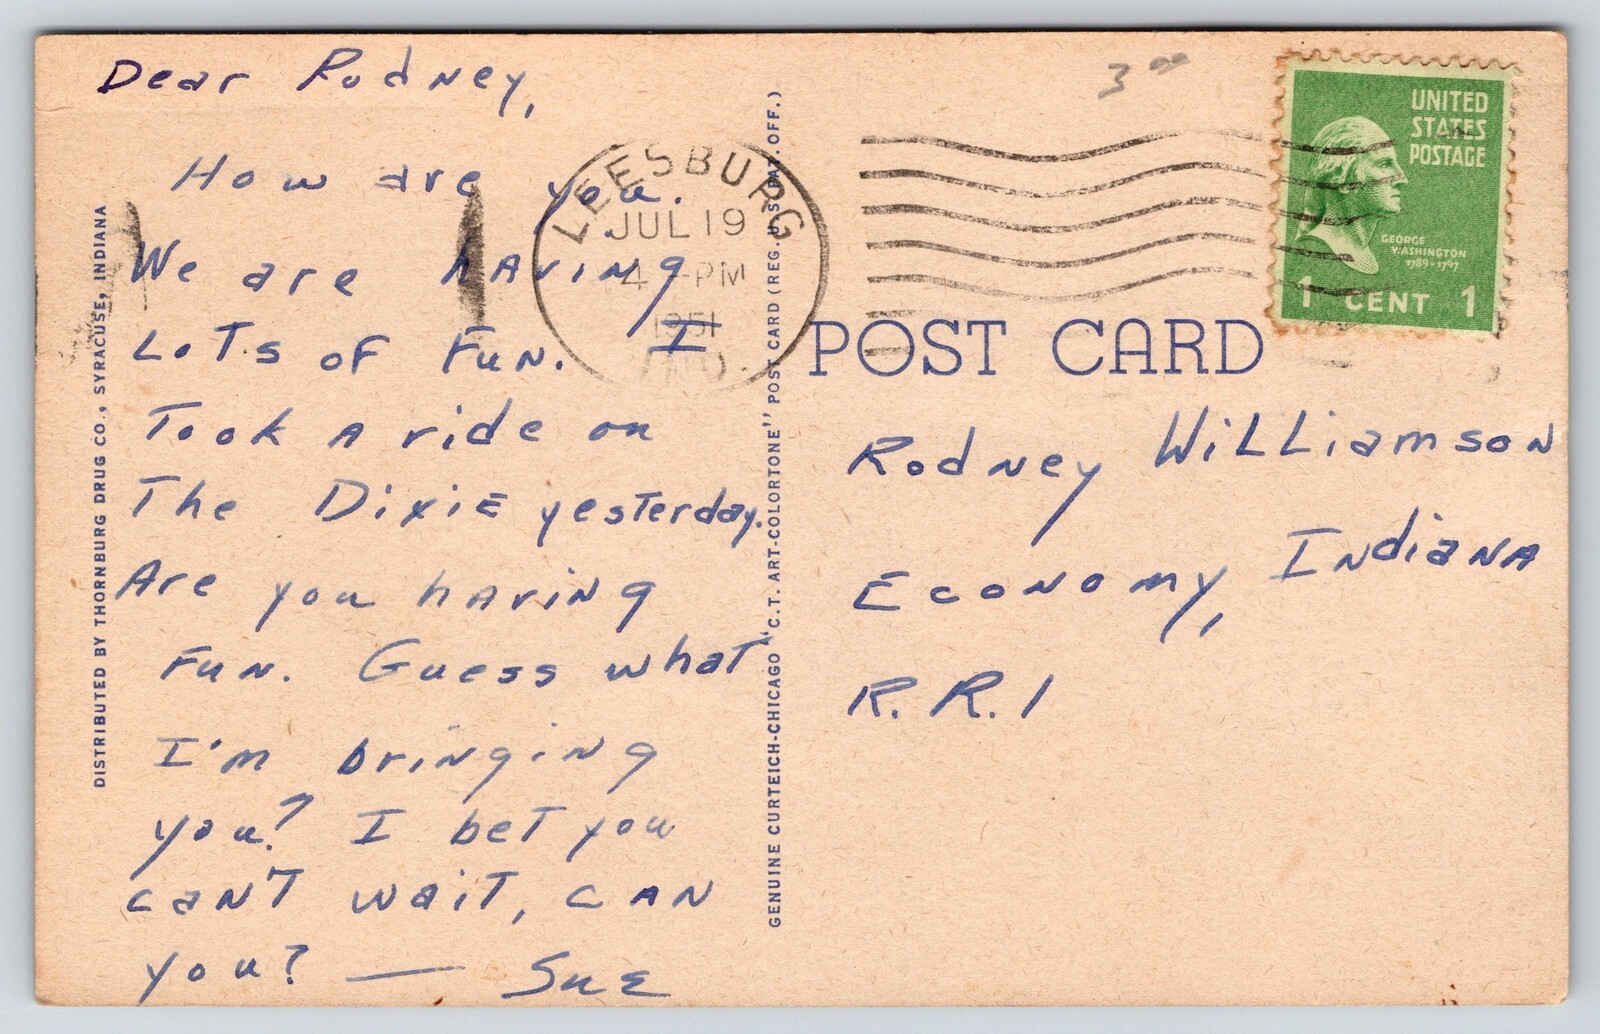 Dear Rodney,
How are you.
We are having
Lots of Fun. I
Took a ride on
The Dixie yesterday.
Are you having
Fun. Guess what
I'm bringing
you? I bet you
can't wait, can
you? — Sue
DISTRIBUTED BY THORNBURG DRUG CO., SYRACUSE, INDIANA
GENUINE CURTEICH-CHICAGO "C.T. ART-COLORTONE" POST CARD (REG. U.S. PAT. OFF.)
LEESBURG
JUL 19
4 -PM
1951
3 00
UNITED
STATES
POSTAGE
GEORGE
WASHINGTON
1789-1797
1 CENT 1
POST CARD
Rodney Williamson
Economy, Indiana
R.R.1